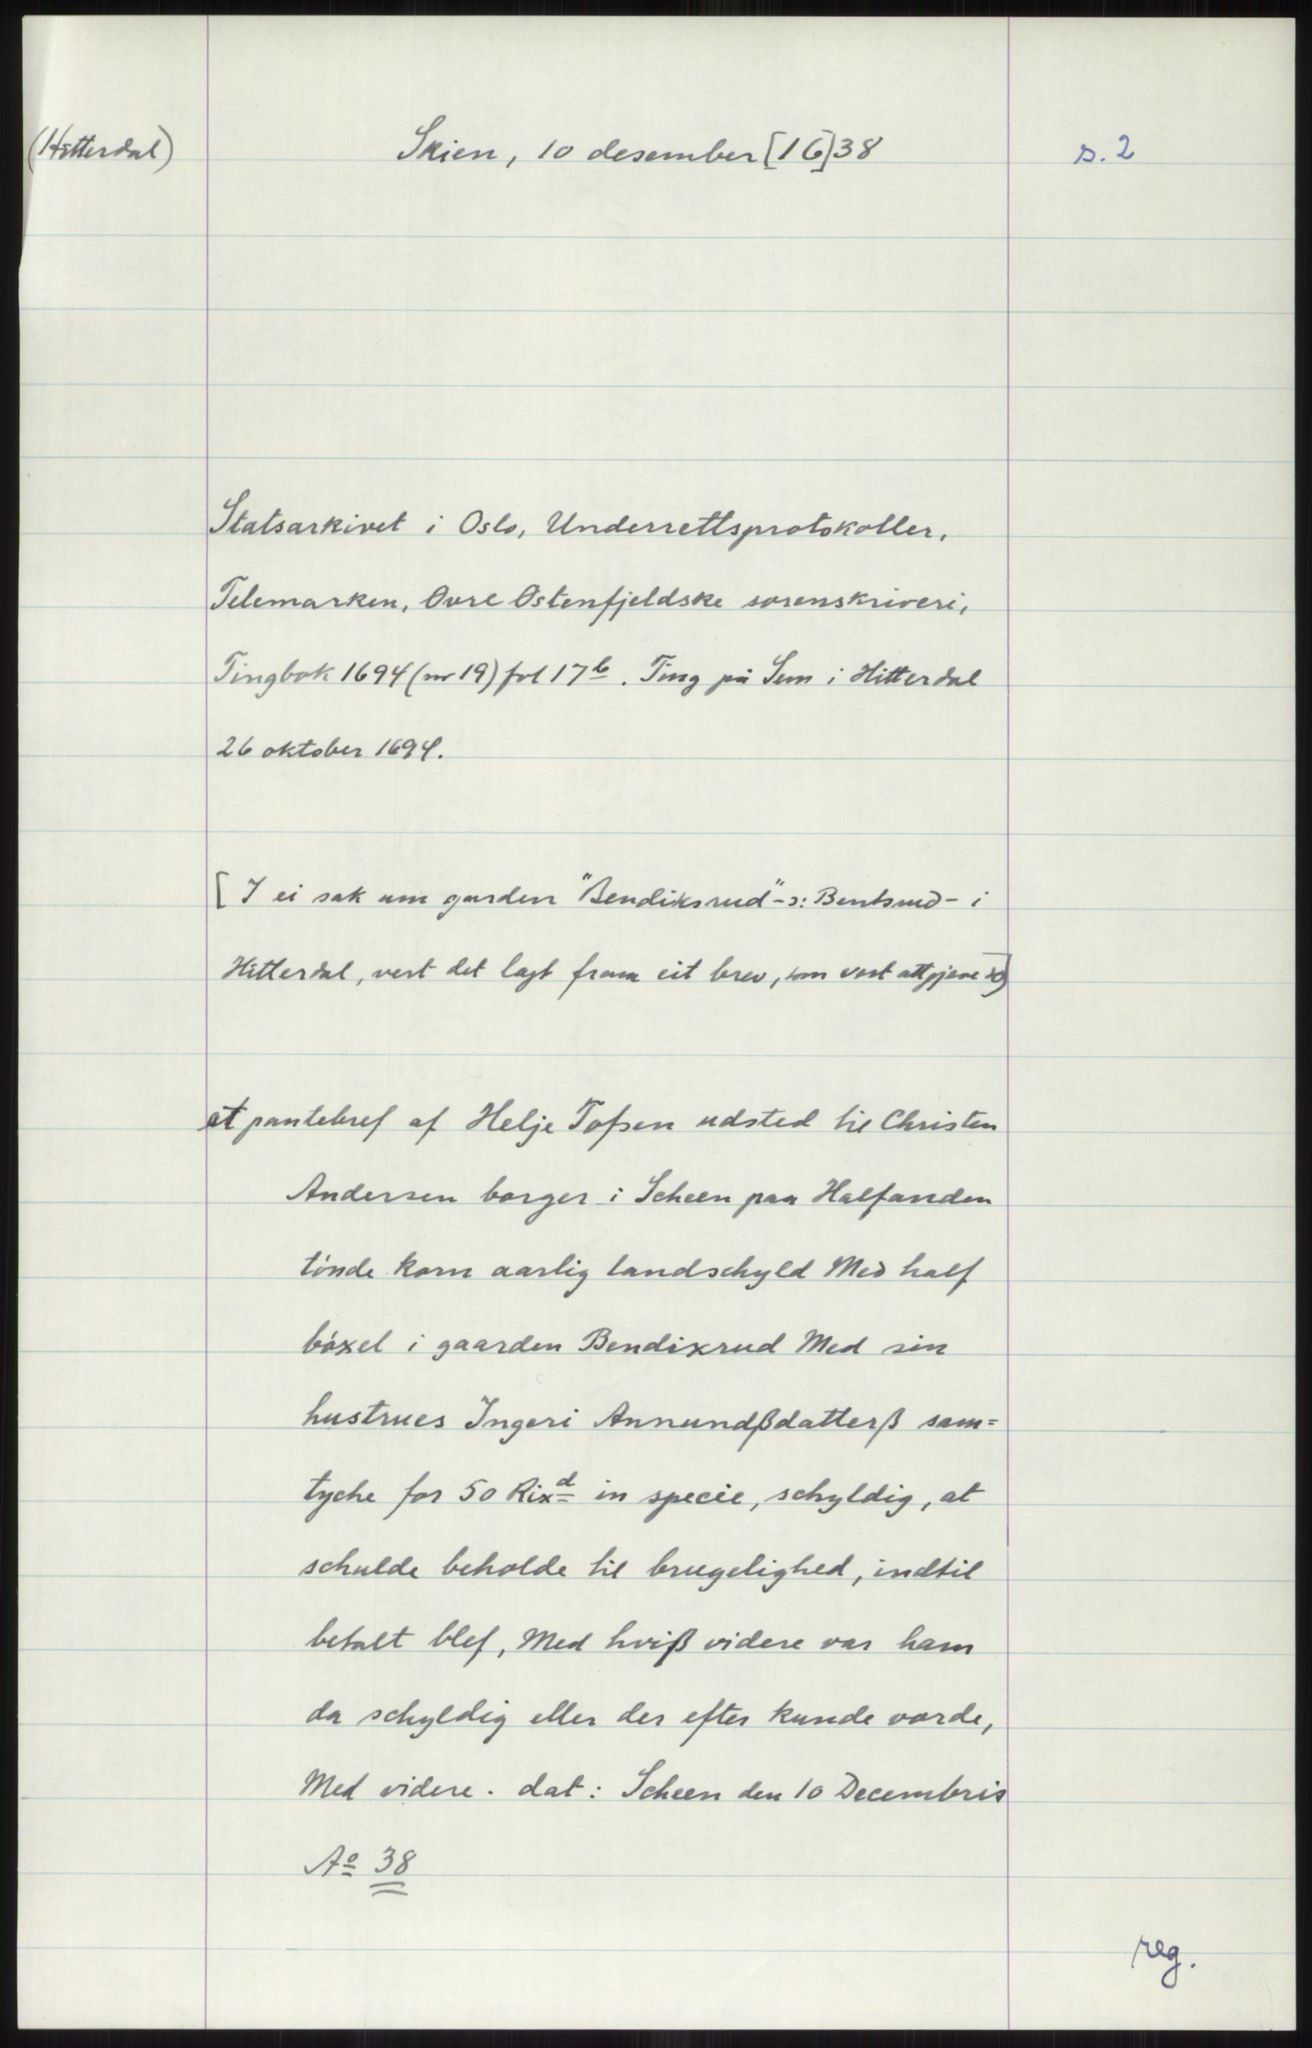 (Hitterdal)
Skien, 10 desember [16]38
s. 2
Statsarkivet i Oslo, Underrettsprotokoller,
Telemarken, Øvre Østenfjeldske sorenskriveri,
Tingbok 1694 (nr 19) fol 17b. Ting på Sem i Hitterdal
26 oktober 1694.
[I ei sak um garden "Bendiksrud" -ɔ: Bentsrud- i
Hitterdal, vert det lagt fram eit brev, som vert attgjeve so]
et pantebref af Helje Tofsen udsted til Christen
Andersen borger i Scheen paa Halfanden
tønde korn aarlig landschyld Med half
bøxel i gaarden Bendixrud Med sin
hustrues Ingeri Annundßdatterß sam=
tyche for 50 Rixd in specie, schyldig, at
schulde beholde til brugelighed, indtil
betalt blef, Med hviß videre var ham
da schyldig eller der efter kunde vorde,
Med videre. dat: Scheen den 10 Decembris
Ao 38
reg.